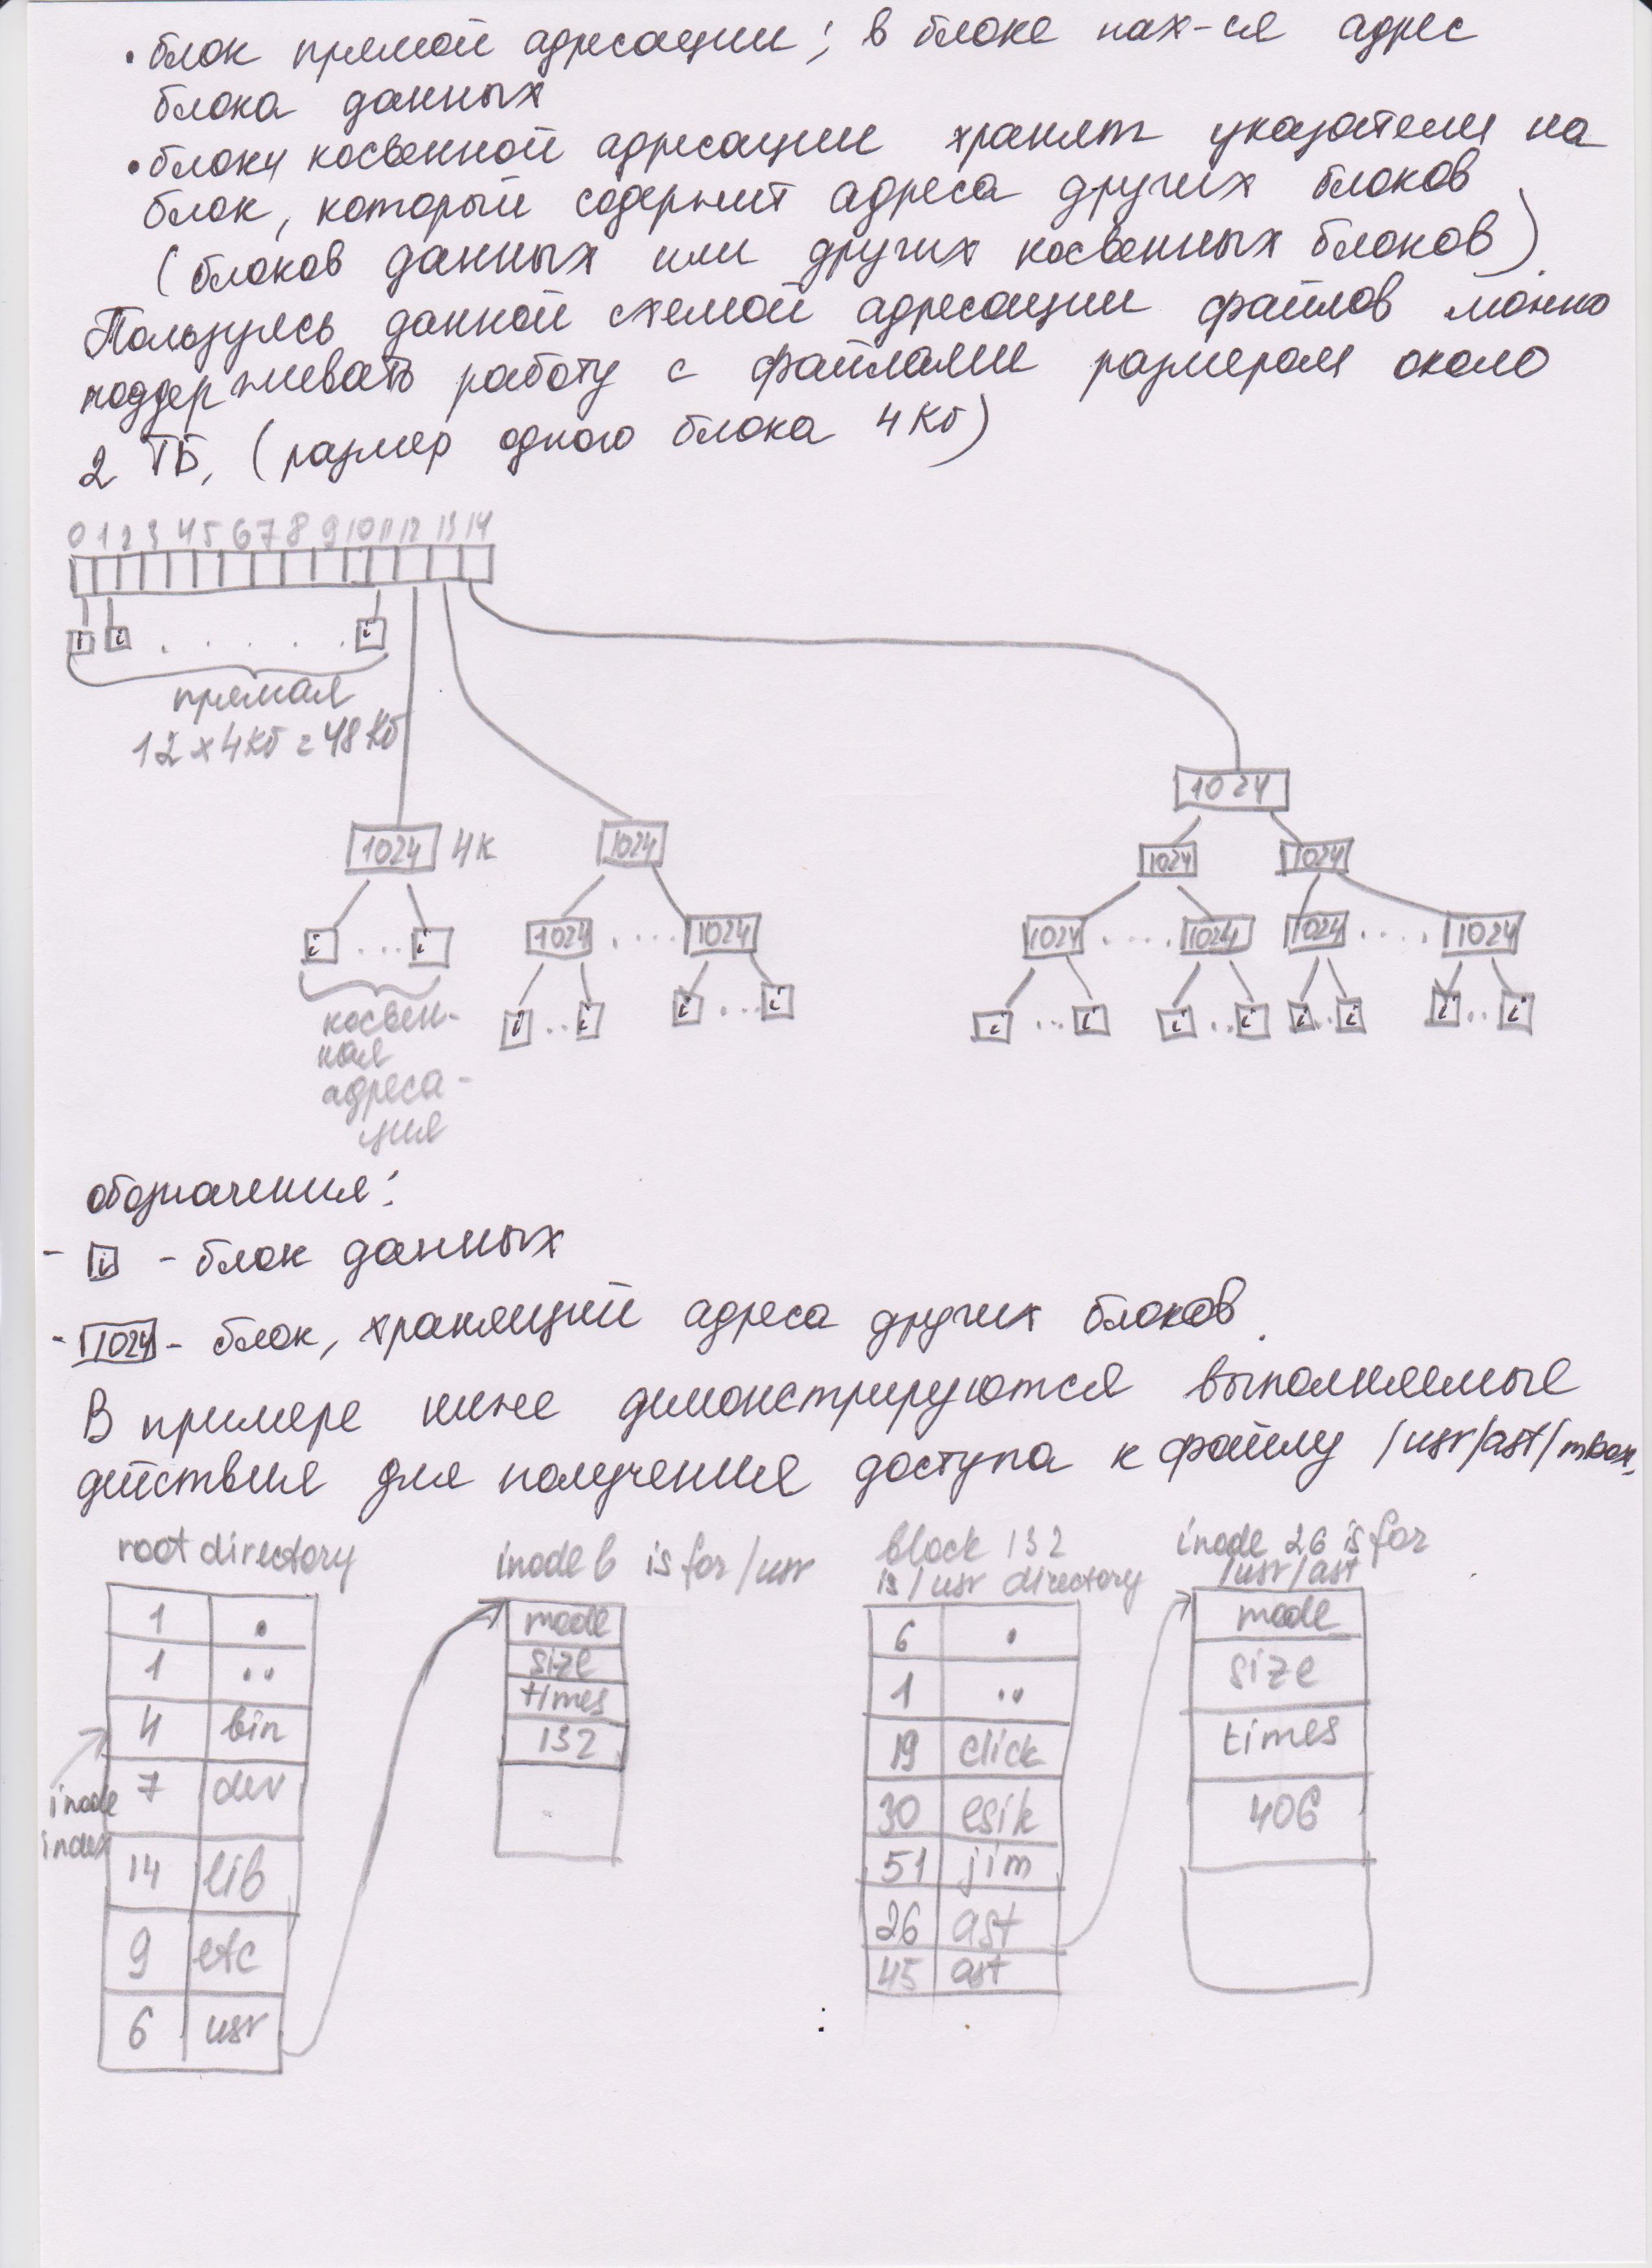 • блок прямой адресации; в блоке нах-ся адрес
блока данных
• блоки косвенной адресации хранят указатели на
блок, который содержит адреса других блоков
(блоков данных или других косвенных блоков).
Пользуясь данной схемой адресации файлов можно
поддерживать работу с файлами размером около
2 ТБ, (размер одного блока 4 Кб)
0 1 2 3 4 5 6 7 8 9 10 11 12 13 14
i i . . . . . i
прямая
12 x 4Кб = 48 Кб
1024
1024 4К 1024 1024 1024
i ... i 1024 .... 1024 1024 .... 1024 1024 .... 1024
i .. i i ... i i ... i i .. i i .. i i .. i
косвен-
ная
адреса-
ция
обозначения:
- i - блок данных
- 1024 - блок, хранящий адреса других блоков.
В примере ниже демонстрируются выполняемые
действия для получения доступа к файлу /usr/ast/mbox.
root directory
1 .
1 ..
4 bin
7 dev
14 lib
9 etc
6 usr
inode
index
inode 6 is for /usr
mode
size
times
132
block 132
is /usr directory
6 .
1 ..
19 click
30 esik
51 jim
26 ast
45 ast
inode 26 is for
/usr/ast
mode
size
times
406